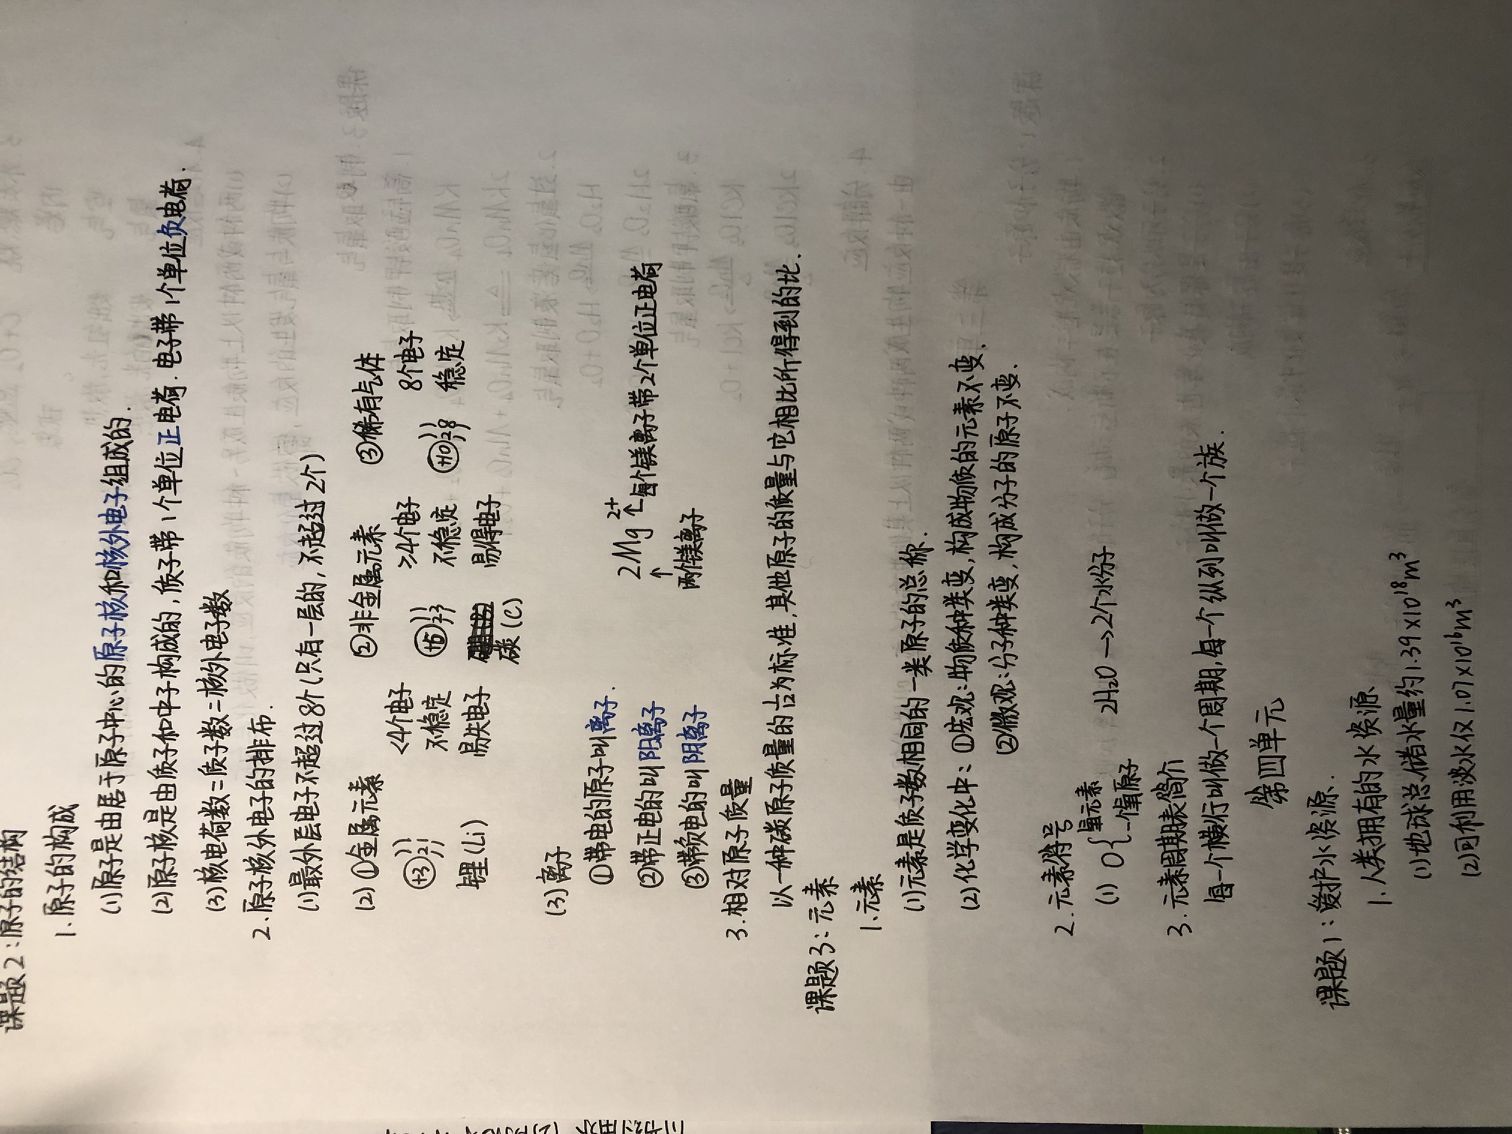 课题2:原子的结构
1.原子的构成
(1)原子是由居于原子中心的原子核和核外电子组成的.
(2)原子核是由质子和中子构成的,质子带1个单位正电荷.电子带1个单位负电荷.
(3)核电荷数=质子数=核外电子数
2.原子核外电子的排布.
(1)最外层电子不超过8个(只有一层的,不超过2个)
(2)①金属元素 ②非金属元素 ③稀有气体
+3 2 1 <4个电子 +6 ≥4个电子 +10 2 8 8个电子
不稳定 不稳定 稳定
锂(Li) 易失电子 易得电子
碳(C)
(3)离子
①带电的原子叫离子.
2Mg2+ 每个镁离子带2个单位正电荷
②带正电的叫阳离子
③带负电的叫阴离子 两个镁离子
3.相对原子质量
以一种碳原子质量的为标准,其他原子的质量与它相比所得到的比.
课题3:元素
1.元素
(1)元素是质子数相同的一类原子的总称.
(2)化学变化中:①宏观:物质种类变,构成物质的元素不变.
②微观:分子种类变,构成分子的原子不变.
2.元素符号
(1) O{氧元素 一个氧原子 2H2O→2个水分子
3.元素周期表简介
每一个横行叫做一个周期,每一个纵列叫做一个族.
第四单元
课题1:爱护水资源.
1.人类拥有的水资源
(1)地球总储水量约1.39×10^18m^3
(2)可利用淡水仅1.07×10^16m^3